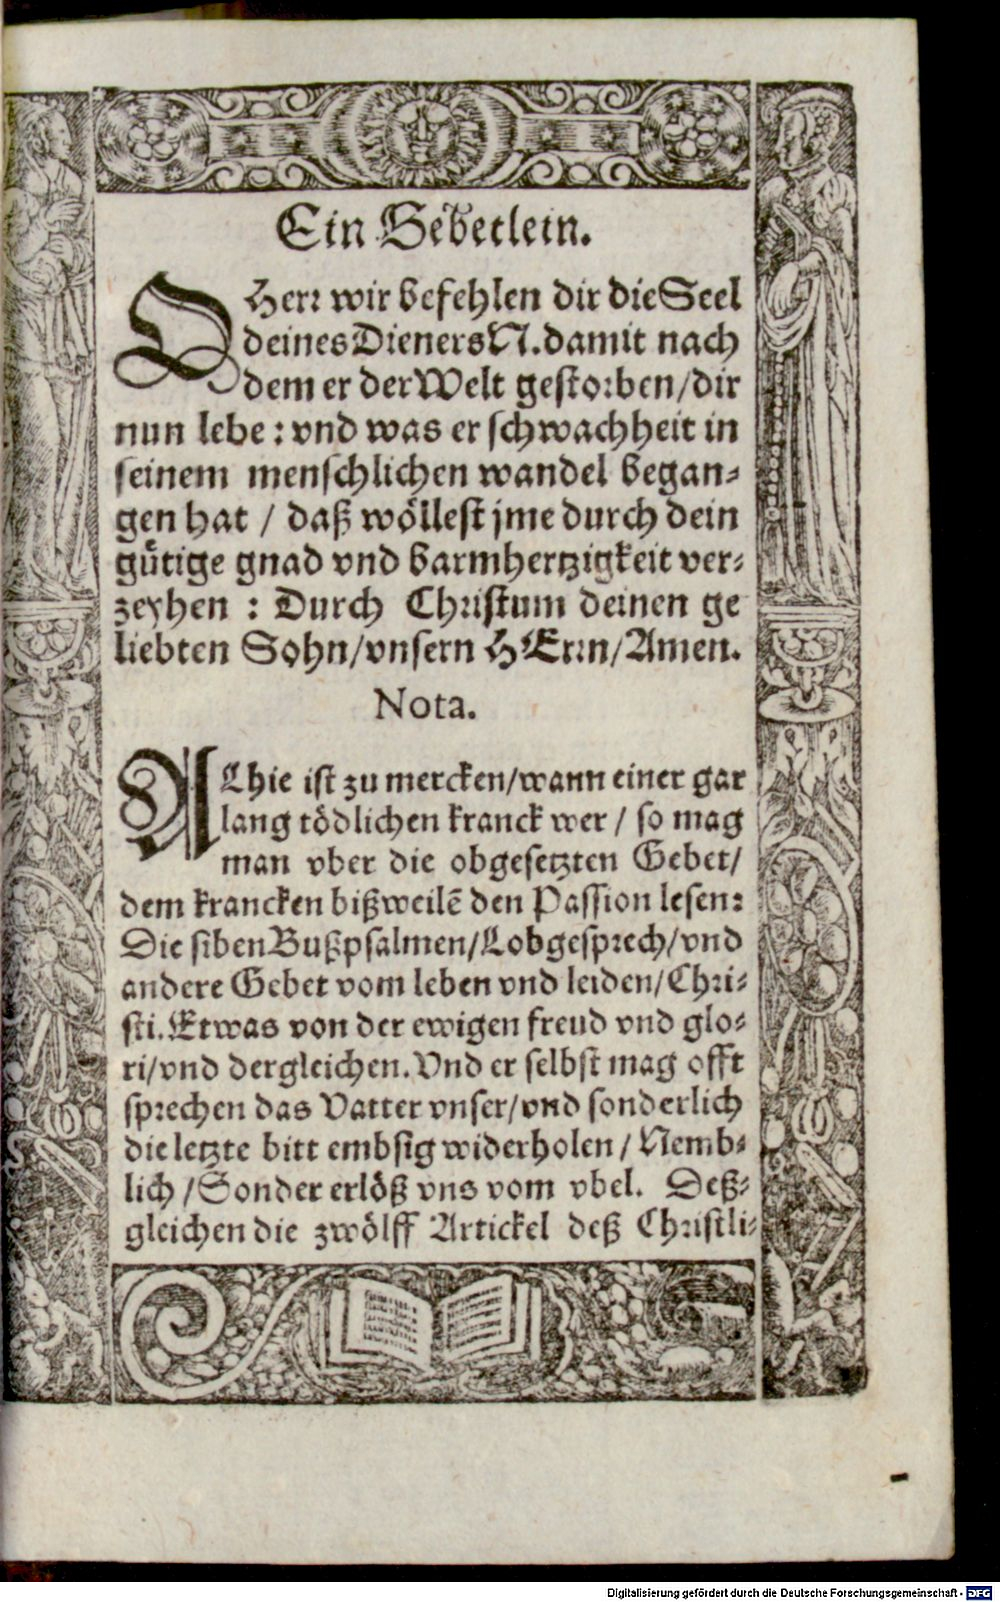 Ein Gebetlein.
O Herr wir befehlen dir die Seel
deines Dieners N. damit nach
dem er der Welt gestorben / dir
nun lebe : vnd was er schwachheit in
seinem menschlichen wandel began-
gen hat / daß wöllest jme durch dein
gütige gnad vnd barmhertzigkeit ver-
zeyhen : Durch Christum deinen ge
liebten Sohn / vnsern HErrn / Amen.
Nota.
ALhie ist zu mercken / wann einer gar
lang tödlichen kranck wer / so mag
man vber die obgesetzten Gebet /
dem krancken bißweilẽ den Passion lesen:
Die siben Bußpsalmen / Lobgesprech / vnd
andere Gebet vom leben vnd leiden / Chri-
sti. Etwas von der ewigen freud vnd glo-
ri / vnd dergleichen. Vnd er selbst mag offt
sprechen das Vatter vnser / vnd sonderlich
die letzte bitt embsig widerholen / Nemb-
lich / Sonder erlöß vns vom vbel. Deß-
gleichen die zwölff Artickel deß Christli-
Digitalisierung gefördert durch die Deutsche Forschungsgemeinschaft - DFG